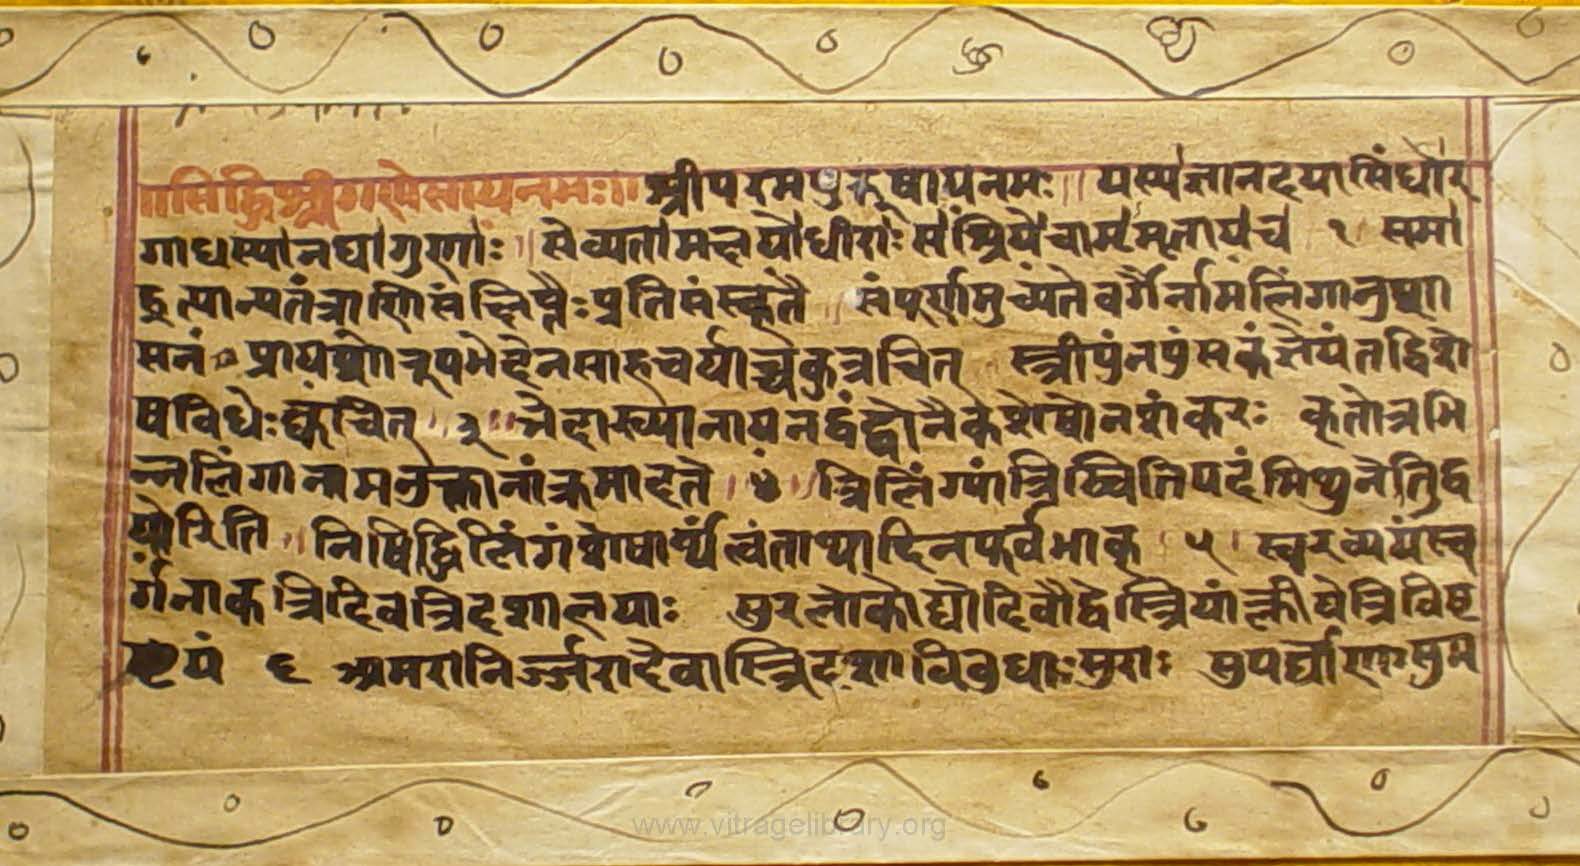 ॥सिद्धिश्रीगणेसायनमः॥श्रीपरमपुरूषायनमः॥ यस्यज्ञानदयासिंधोर
गाधस्यानघागुणाः॥सेव्यतामक्षयोधीराः सश्रियेचामृतायच १ समा
हृत्यान्यतंत्राणिसंक्षिप्तैःप्रतिसंस्कृतै॥संपूर्णामुच्यतेवर्गैर्नामलिंगानुशा
सनं २ प्रायशोरूपभेदेनसाहचर्याच्चकुत्रचित् स्त्रीपुंनपुंसकंज्ञेयंतद्विशे
षविधेःक्वचित्॥३॥भेदाख्यानायनद्वंद्वोनैकशेषोनशंकरः कृतोत्रभि
न्नलिंगानामनुक्तानांक्रमादृते॥४॥त्रिलिंग्यांत्रिष्वितिपदंमिथुनेतुद्व
योरिति॥निषिद्धलिंगंशेषार्थंत्वंताथादिनपूर्वभाक् ५। स्वरव्ययंस्व
र्गनाकत्रिदिवत्रिदशालयाः सुरलोकोद्योदिवौद्वेस्त्रियांक्लीवेत्रिविष्ट
पं ६ अमरानिर्ज्जरादेवास्त्रिदशाविवुधाःसुराः सुपर्वाणःसुम
www.vitragelibrary.org